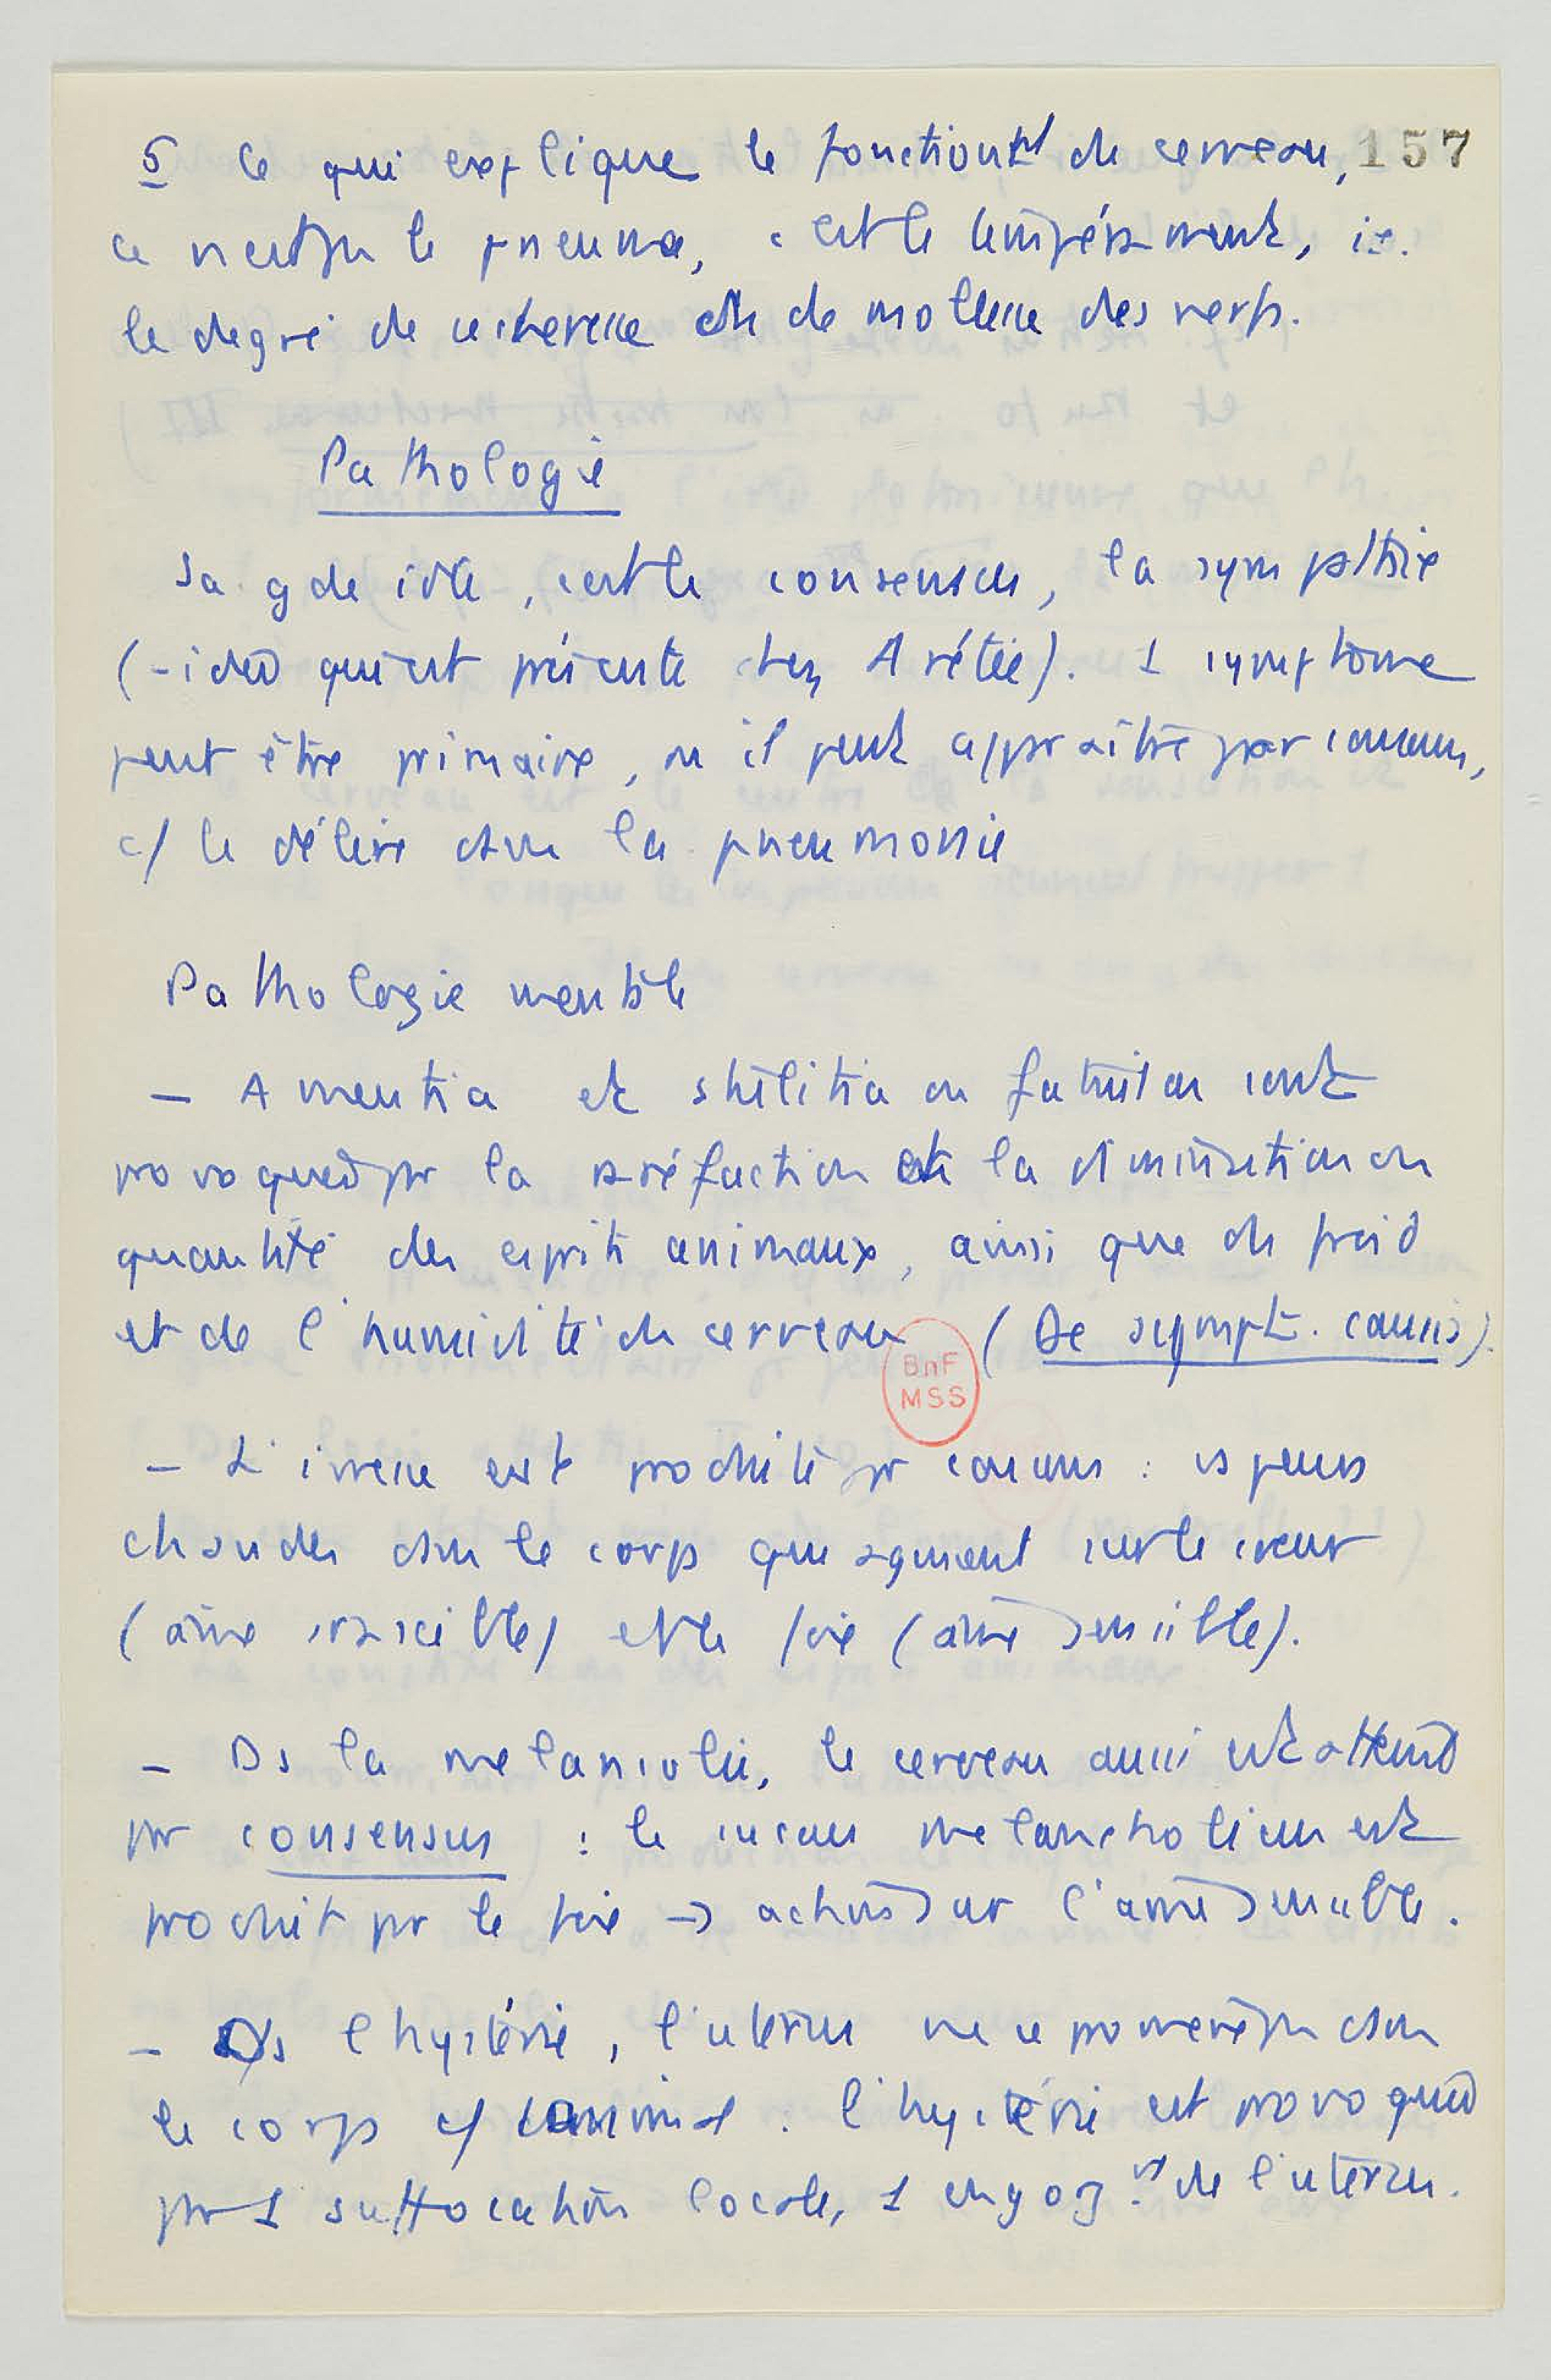 5 Ce qui explique le fonctionnt du cerveau, 157
ce n'est pas le pneuma, c'est le tempérament, i.e.
le degré de sécheresse ou de mollesse des nerfs.
Pathologie
Sa gde idée, c'est le consensus, la sympathie
(- idée qui est présente chez Arétée). 1 symptome
peut être primaire, ou il peut apparaître par consensus,
c/ le délire dans la pneumonie
Pathologie mentale
- Amentia et stultitia ou fatuitas sont
provoquées par la raréfaction et la diminution en
quantité des esprits animaux, ainsi que du froid
et de l'humidité du cerveau (De sympt. causis).
BnF
MSS
- L'ivresse est produite par consensus : vapeurs
chaudes dans le corps que agissent sur le cœur
(âme irascible) et le foie (âme sensible).
- Ds la melancolie, le cerveau aussi est atteint
par consensus : le succus melancholicus est
produit par le foie → action sur l'âme sensible.
- Ds l'hystérie, l'uterus ne se promène pas dans
le corps c/ animal : l'hystérie est provoquée
par 1 suffocation locale, 1 engorgt de l'uterus.